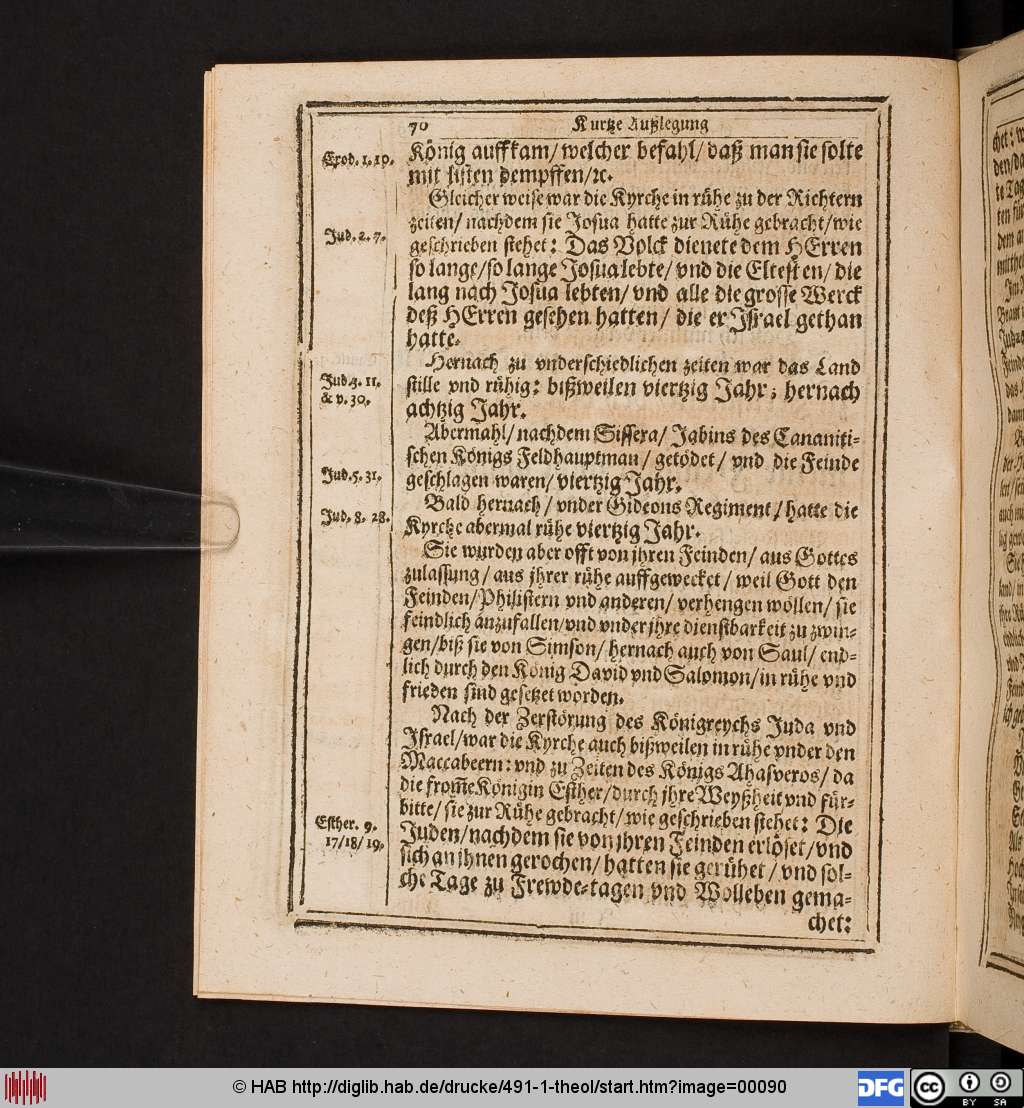 70 Kurtze Außlegung
Exod. 1. 10.
König auffkam/ welcher befahl/ daß man sie solte
mit listen dempffen/ ꝛc.
Gleicher weise war die Kyrche in rühe zu der Richtern
zeiten/ nachdem sie Josua hatte zur Rühe gebracht/ wie
Jud. 2. 7.
geschrieben stehet: Das Volck dienete dem HErren
so lange/ so lange Josua lebte/ vnd die Eltesten/ die
lang nach Josua lebten/ vnd alle die grosse Werck
deß HErren gesehen hatten/ die er Jsrael gethan
hatte.
Hernach zu vnderschiedlichen zeiten war das Land
Jud. 3. 11.
& v. 30.
stille vnd rühig: bißweilen viertzig Jahr; hernach
achtzig Jahr.
Abermahl/ nachdem Sissera/ Jabins des Cananiti-
schen Königs Feldhauptman/ getödet/ vnd die Feinde
Jud. 5. 31.
geschlagen waren/ viertzig Jahr.
Bald hernach/ vnder Gideons Regiment/ hatte die
Jud. 8. 28.
Kyrche abermal rühe viertzig Jahr.
Sie wurden aber offt von jhren Feinden/ aus Gottes
zulassung/ aus jhrer rühe auffgewecket/ weil Gott den
Feinden/ Philistern vnd anderen/ verhengen wöllen/ sie
feindlich anzufallen/ vnd vnder jhre dienstbarkeit zu zwin-
gen/ biß sie von Simson/ hernach auch von Saul/ end-
lich durch den König David vnd Salomon/ in rühe vnd
frieden sind gesetzet worden.
Nach der Zerstörung des Königreychs Juda vnd
Jsrael/ war die Kyrche auch bißweilen in rühe vnder den
Maccabeern: vnd zu Zeiten des Königs Ahasveros/ da
die from̃e Königin Esther/ durch jhre Weyßheit vnd für-
bitte/ sie zur Rühe gebracht/ wie geschrieben stehet: Die
Esther. 9.
17/18/19.
Juden/ nachdem sie von jhren Feinden erlöset/ vnd
sich an jhnen gerochen/ hatten sie gerühet/ vnd sol-
che Tage zu Frewde-tagen vnd Wolleben gema-
chet:
© HAB http://diglib.hab.de/drucke/491-1-theol/start.htm?image=00090
DFG
cc
BY SA